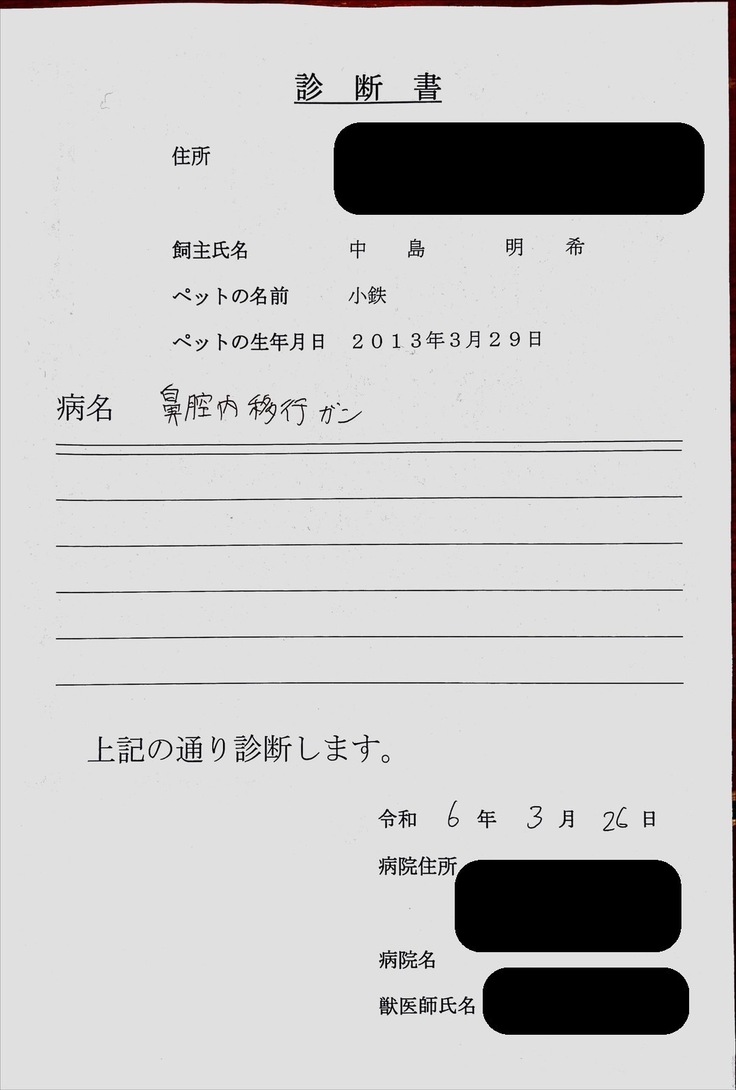 診 断 書
住所
飼主氏名 中 島 明 希
ペットの名前 小鉄
ペットの生年月日 ２０１３年３月２９日
病名 鼻腔内移行ガン
上記の通り診断します。
令和 6 年 3 月 26 日
病院住所
病院名
獣医師氏名